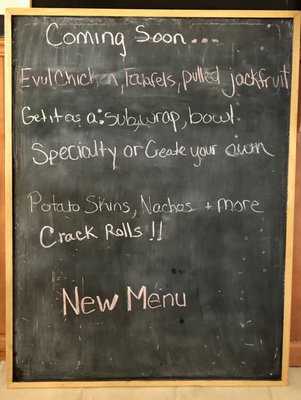 Coming Soon...
Evul Chicken, Falafels, pulled jackfruit
Get it as a: sub, wrap, bowl
Specialty or Create your own
Potato Skins, Nachos + more
Crack Rolls !!
New Menu